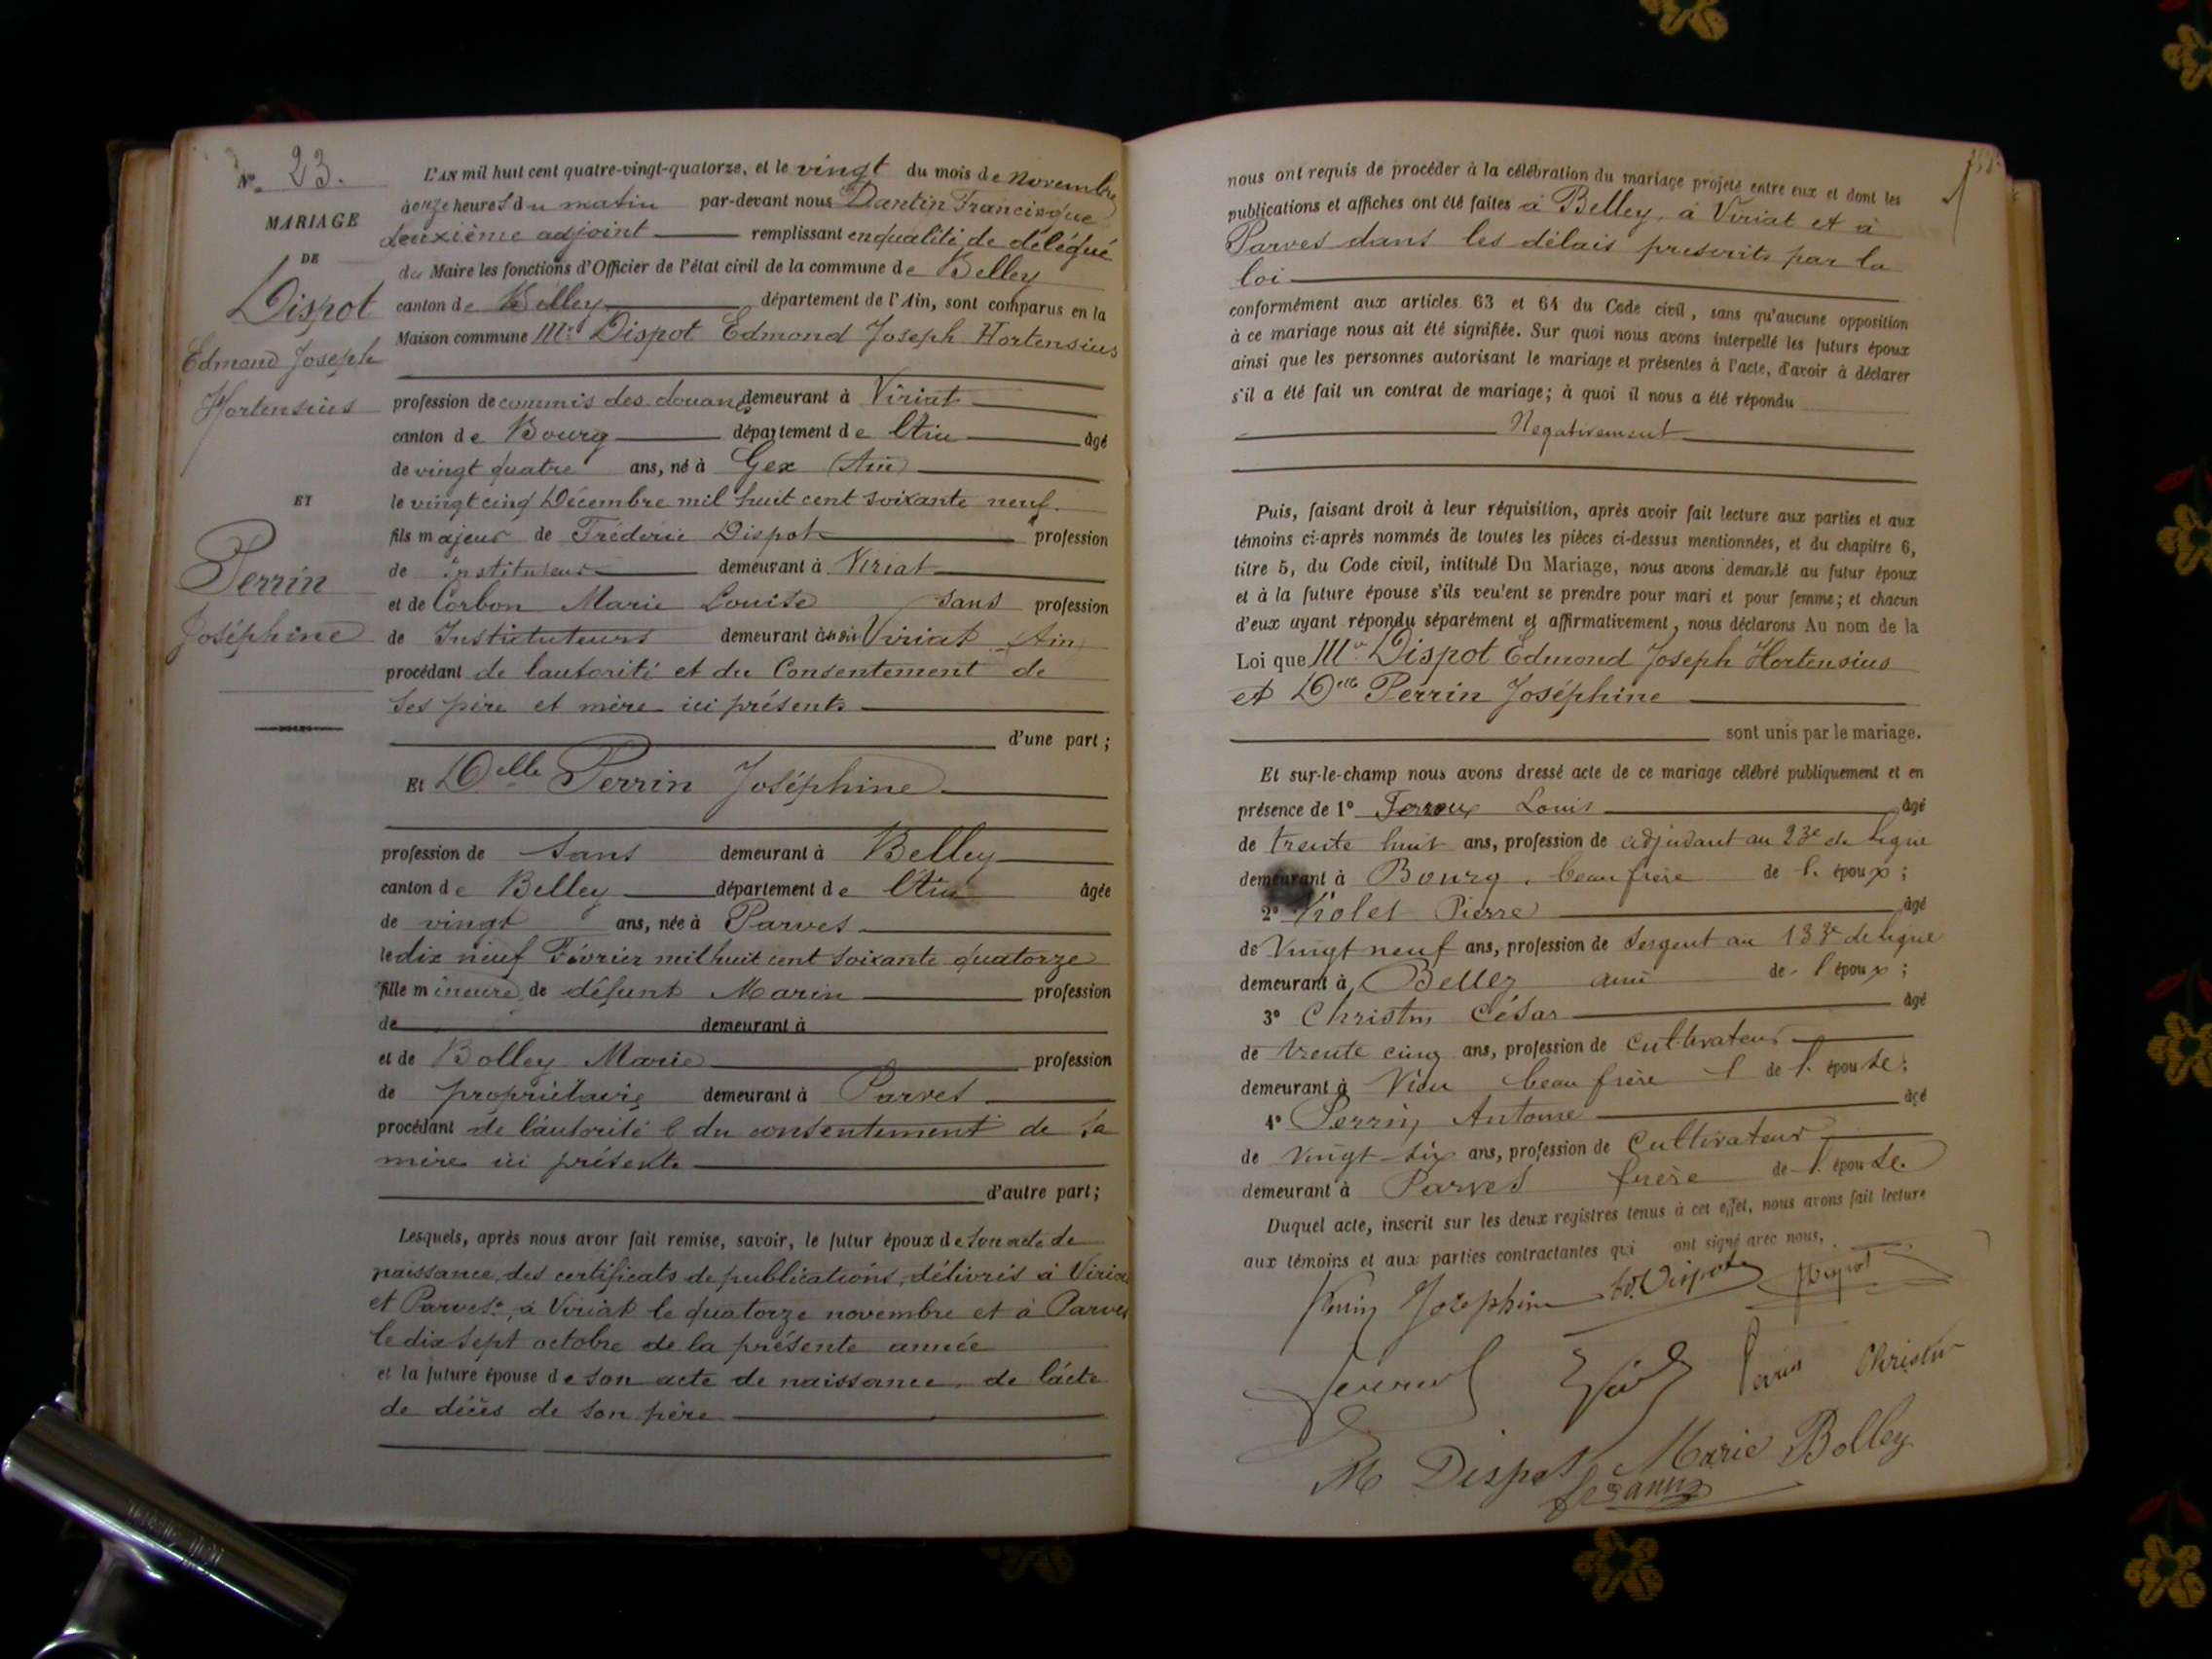 N° 23.
MARIAGE
DE
Dispot
Edmond Joseph
Hortensius
ET
Perrin
Joséphine
L'AN mil huit cent quatre-vingt-quatorze, et le vingt du mois de novembre
à onze heures du matin par-devant nous Dantin Francisque
deuxième adjoint remplissant en qualité de délégué
du Maire les fonctions d'Officier de l'état civil de la commune de Belley
canton de Belley département de l'Ain, sont comparus en la
Maison commune Mr Dispot Edmond Joseph Hortensius
profession de commis des douanes demeurant à Viriat
canton de Bourg département de l'Ain âgé
de vingt quatre ans, né à Gex (Ain)
le vingt cinq Décembre mil huit cent soixante neuf.
fils majeur de Fréderic Dispot profession
de Instituteur demeurant à Viriat
et de Corbon Marie Louise sans profession
de Instituteurs demeurant à Viriat (Ain)
procédant de l'autorité et du Consentement de
ses père et mère ici présents
d'une part;
Et Delle Perrin Joséphine
profession de sans demeurant à Belley
canton de Belley département de l'Ain âgée
de vingt ans, née à Parves
le dix neuf Février mil huit cent soixante quatorze
fille mineure de défunt Marin profession
de demeurant à
et de Bolley Marie profession
de propriétaire demeurant à Parves
procédant de l'autorité & du consentement de sa
mère ici présente
d'autre part;
Lesquels, après nous avoir fait remise, savoir, le futur époux de son acte de
naissance, des certificats de publications, délivrés à Viriat
et Parves, à Viriat le quatorze novembre et à Parves
le dix sept octobre de la présente année
et la future épouse de son acte de naissance, de l'acte
de décès de son père
nous ont requis de procéder à la célébration du mariage projeté entre eux et dont les
publications et affiches ont été faites à Belley, à Viriat et à
Parves dans les délais prescrits par la
loi
conformément aux articles 63 et 64 du Code civil, sans qu'aucune opposition
à ce mariage nous ait été signifiée. Sur quoi nous avons interpellé les futurs époux
ainsi que les personnes autorisant le mariage et présentes à l'acte, d'avoir à déclarer
s'il a été fait un contrat de mariage; à quoi il nous a été répondu
Negativement
Puis, faisant droit à leur réquisition, après avoir fait lecture aux parties et aux
témoins ci-après nommés de toutes les pièces ci-dessus mentionnées, et du chapitre 6,
titre 5, du Code civil, intitulé Du Mariage, nous avons demandé au futur époux
et à la future épouse s'ils veulent se prendre pour mari et pour femme; et chacun
d'eux ayant répondu séparément et affirmativement, nous déclarons Au nom de la
Loi que Mr Dispot Edmond Joseph Hortensius
et Delle Perrin Joséphine
sont unis par le mariage.
Et sur-le-champ nous avons dressé acte de ce mariage célébré publiquement et en
présence de 1° Louis âgé
de trente huit ans, profession de adjudant au 23e de ligne
demeurant à Bourg, beau frère de l'époux;
2° Violet Pierre âgé
de Vingt neuf ans, profession de Sergent au 133e de ligne
demeurant à Belley ami de l'époux;
3° Christin César âgé
de trente cinq ans, profession de Cultivateur
demeurant à Vieu beau frère de l'épouse;
4° Perrin Antoine âgé
de Vingt six ans, profession de Cultivateur
demeurant à Parves frère de l'épouse.
Duquel acte, inscrit sur les deux registres tenus à cet effet, nous avons fait lecture
aux témoins et aux parties contractantes qui ont signé avec nous.
Perrin Josephine Ed. Dispot Dispot
Perrin Christin
M Dispot Marie Bolley